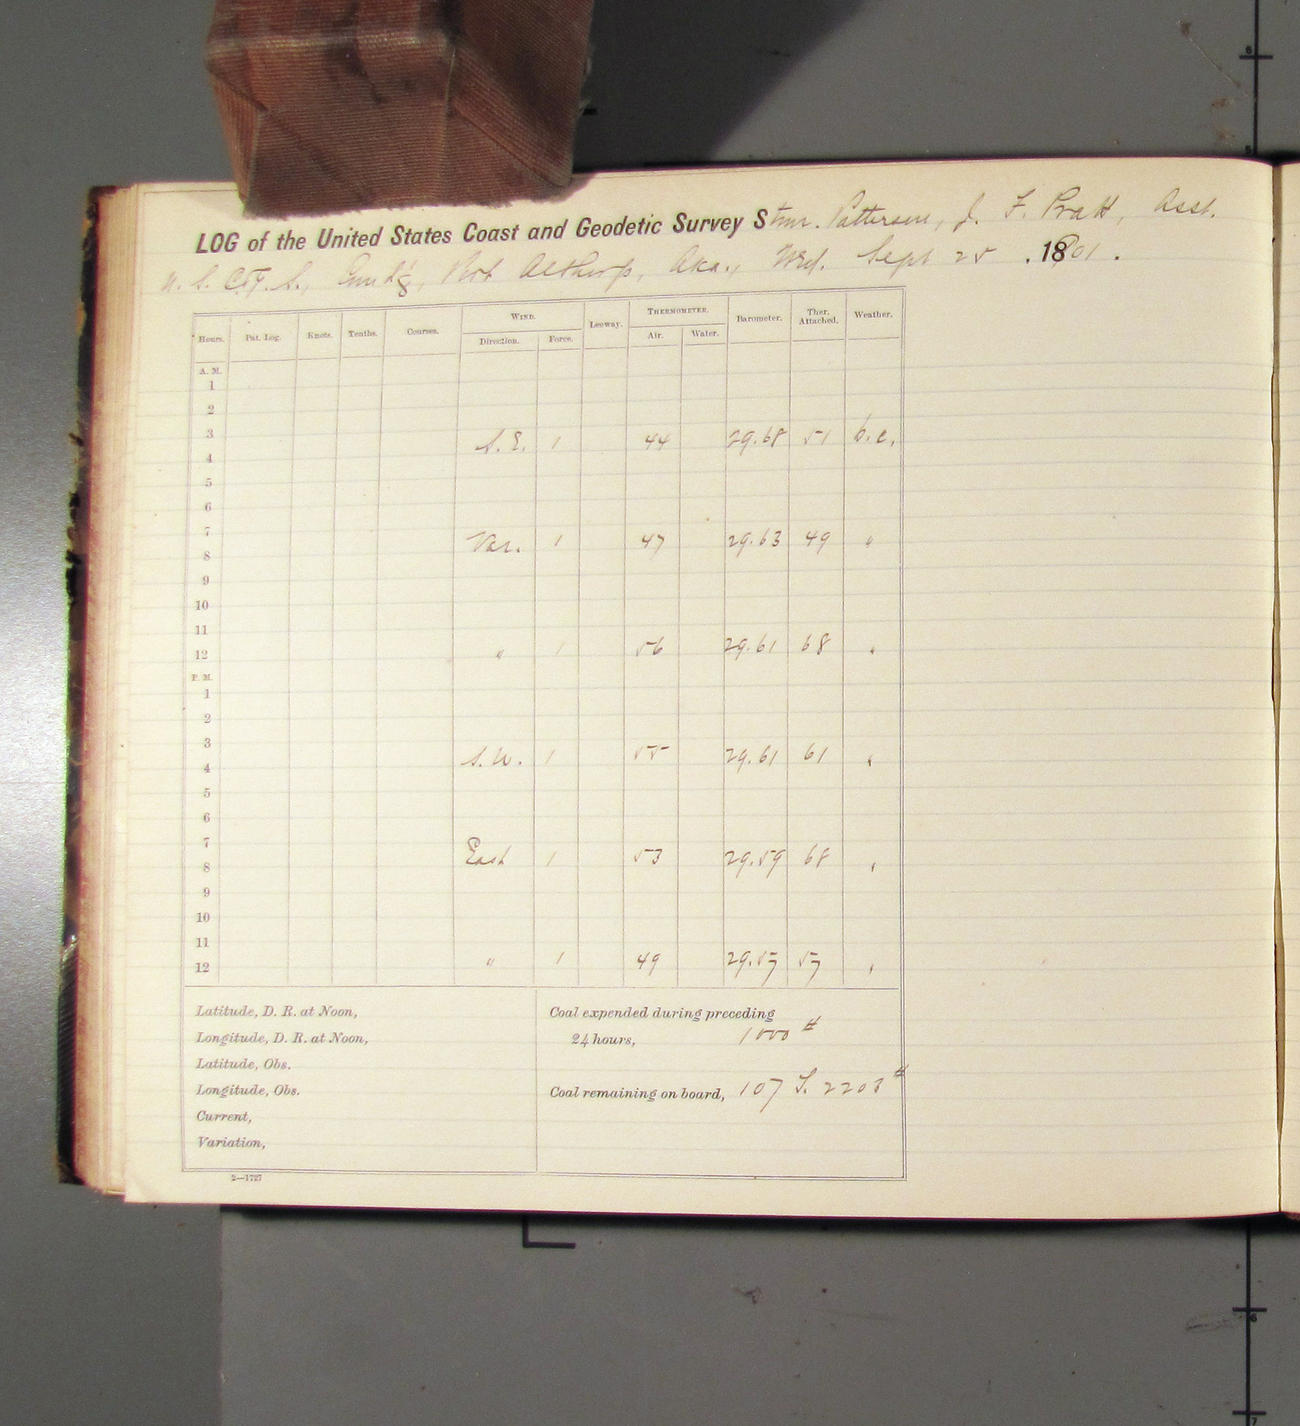 LOG of the United States Coast and Geodetic Survey Stmr. Patterson, J. F. Pratt, Asst.
U. S. C. & G. S., Comd'g, Port Althorp, Aka., Wed. Sept 25 . 1901 .
Hours. Pat. Log. Knots. Tenths. Courses. WIND. Leeway. THERMOMETER. Barometer. Ther. Attached. Weather.
Direction. Force. Air. Water.
A. M.
1
2
3 S. E. 1 44 29.68 51 b. c.
4
5
6
7 Var. 1 47 29.63 49 "
8
9
10
11
12 " 1 56 29.61 68 "
P. M.
1
2
3
4 S. W. 1 55 29.61 61 "
5
6
7
8 East 1 53 29.59 68 "
9
10
11
12 " 1 49 29.57 57 "
Latitude, D. R. at Noon,
Longitude, D. R. at Noon,
Latitude, Obs.
Longitude, Obs.
Current,
Variation,
Coal expended during preceding
24 hours, 1000 #
Coal remaining on board, 107 T. 2203 #
2—1727